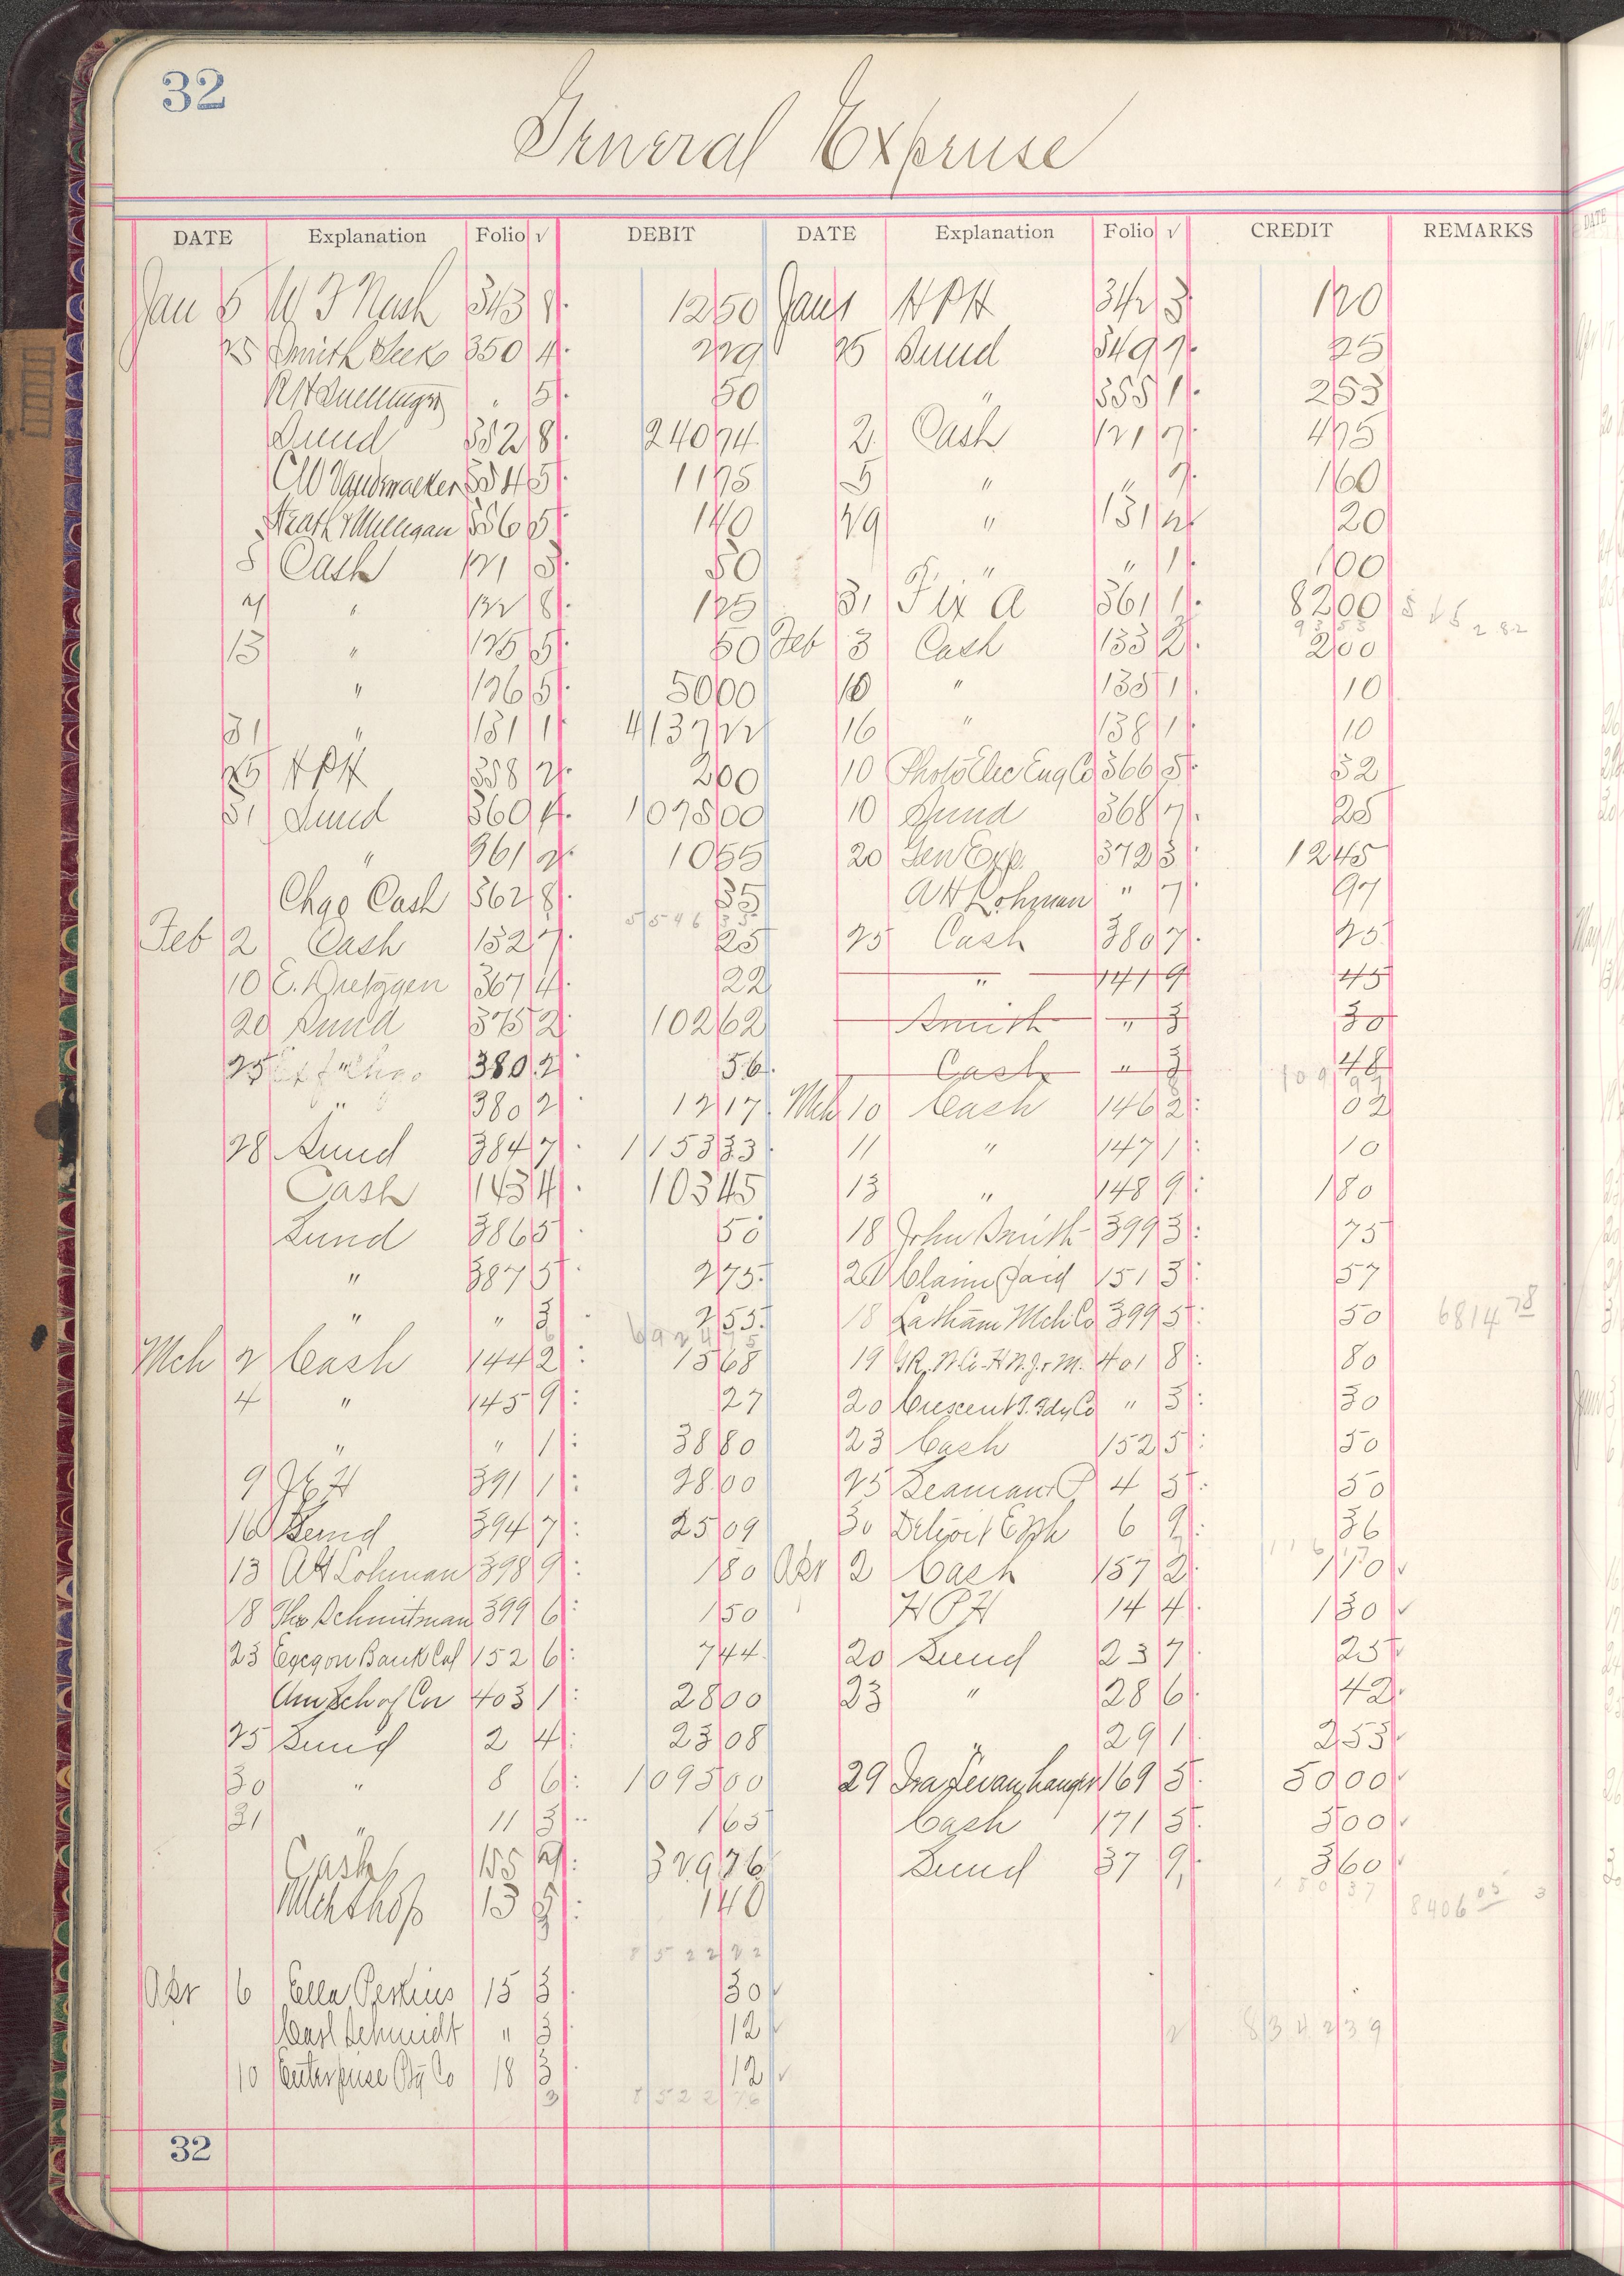 32
General Expense
DATE Explanation Folio √ DEBIT DATE Explanation Folio √ CREDIT REMARKS
Jan 5 W F Nash 343 8 12 50 Jan 1 H P H 342 3 1 20
25 Smith 350 4 2 29 25 Sund 349 7 25
" 5 50 " 355 1 2 53
Sund 352 8 240 74 2 Cash 121 7 4 75
C W Vandewalker 354 5 11 75 5 " " 7 1 60
Heath & Milligan 356 5 1 40 29 " 131 2 20
5 Cash 121 3 50 " " 1 1 00
7 " 122 8 1 25 31 Fix a 361 1 82 00
13 " 125 5 50 Feb 3 Cash 133 2 2 00
" 126 5 50 00 10 " 135 1 10
31 " 131 1 4137 22 16 " 138 1 10
25 H P H 358 2 2 00 10 Photo Elec Eng Co 366 5 52
31 Sund 360 4 1075 00 10 Sund 368 7 25
" 361 2 10 55 20 Gen Exp 372 3 12 45
Chgo Cash 362 8 35 A H Lohman " 7 97
5546 35
Feb 2 Cash 132 7 25 25 Cash 380 7 25
10 E. Dietzgen 367 4 22 " 141 9 45
20 Sund 375 2 102 62 Smith " 3 30
25 380 2 56 Cash " 3 48
" 380 2 12 17 Mch 10 Cash 146 2 02
28 Sund 384 7 1153 33 11 " 147 1 10
Cash 143 4 103 45 13 " 148 9 1 80
Sund 386 5 50 18 John Smith 399 3 75
" 387 5 2 75 20 Claim Paid 151 3 57
" " 3 2 55 18 Latham Mch Co 399 5 50 6814 78
6924 75
Mch 2 Cash 144 2 15 68 19 G.R. N. Co. H N. J. & M. 401 8 80
4 " 145 9 27 20 Crescent T. Fdy Co " 3 30
" " 1 38 80 23 Cash 152 5 50
9 391 1 28 00 25 Seaman P 4 5 50
16 Sund 394 7 25 09 30 Detroit E 6 9 36
13 A H Lohman 398 9 1 80 Apr 2 Cash 157 2 1 10
18 Theo Schmitman 399 6 1 50 H P H 14 4 1 30
23 Bank Cal 152 6 7 44 20 Sund 23 7 25
Am Sch of Cor 403 1 28 00 23 " 28 6 42
25 Sund 2 4 23 08 " 29 1 2 53
30 " 8 6 1095 00 29 Ira 169 5 50 00
31 " 11 3 1 65 Cash 171 5 5 00
Cash 155 329 76 Sund 37 9 3 60
Mchshop 13 5 1 40 8406 05
8522 22
Apr 6 Ella Perkins 15 3 30
Carl Schmidt " 3 12 8342 39
10 Enterprise Co 18 3 12
8522 76
32